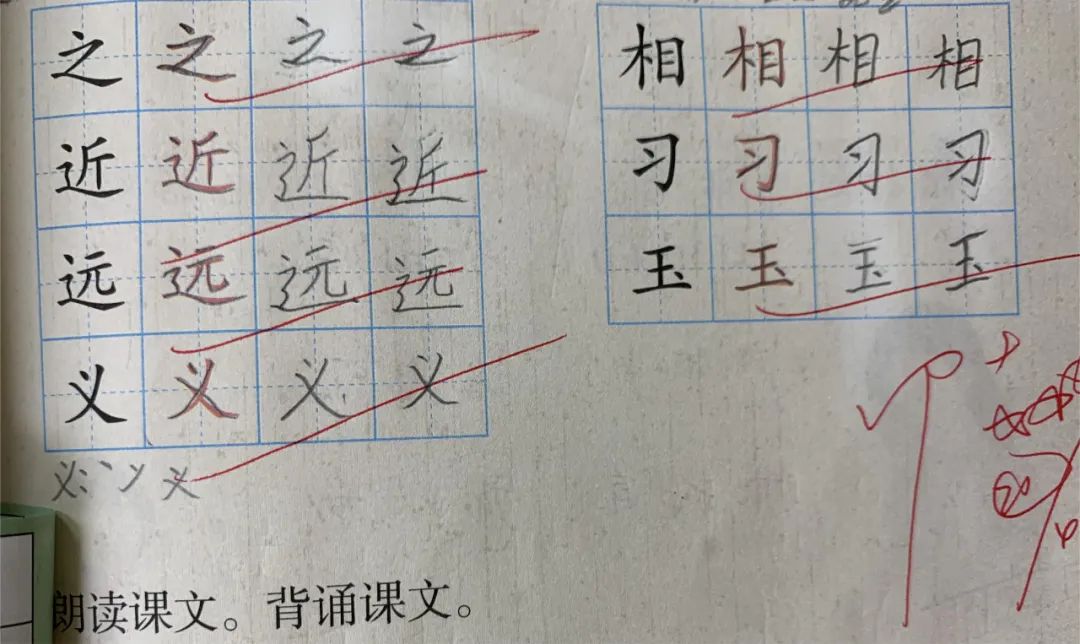 之 之 之 之
近 近 近 近
远 远 远 远
义 义 义 义
义:丶 㐅 义
相 相 相 相
习 习 习 习
玉 玉 玉 玉
朗读课文。背诵课文。